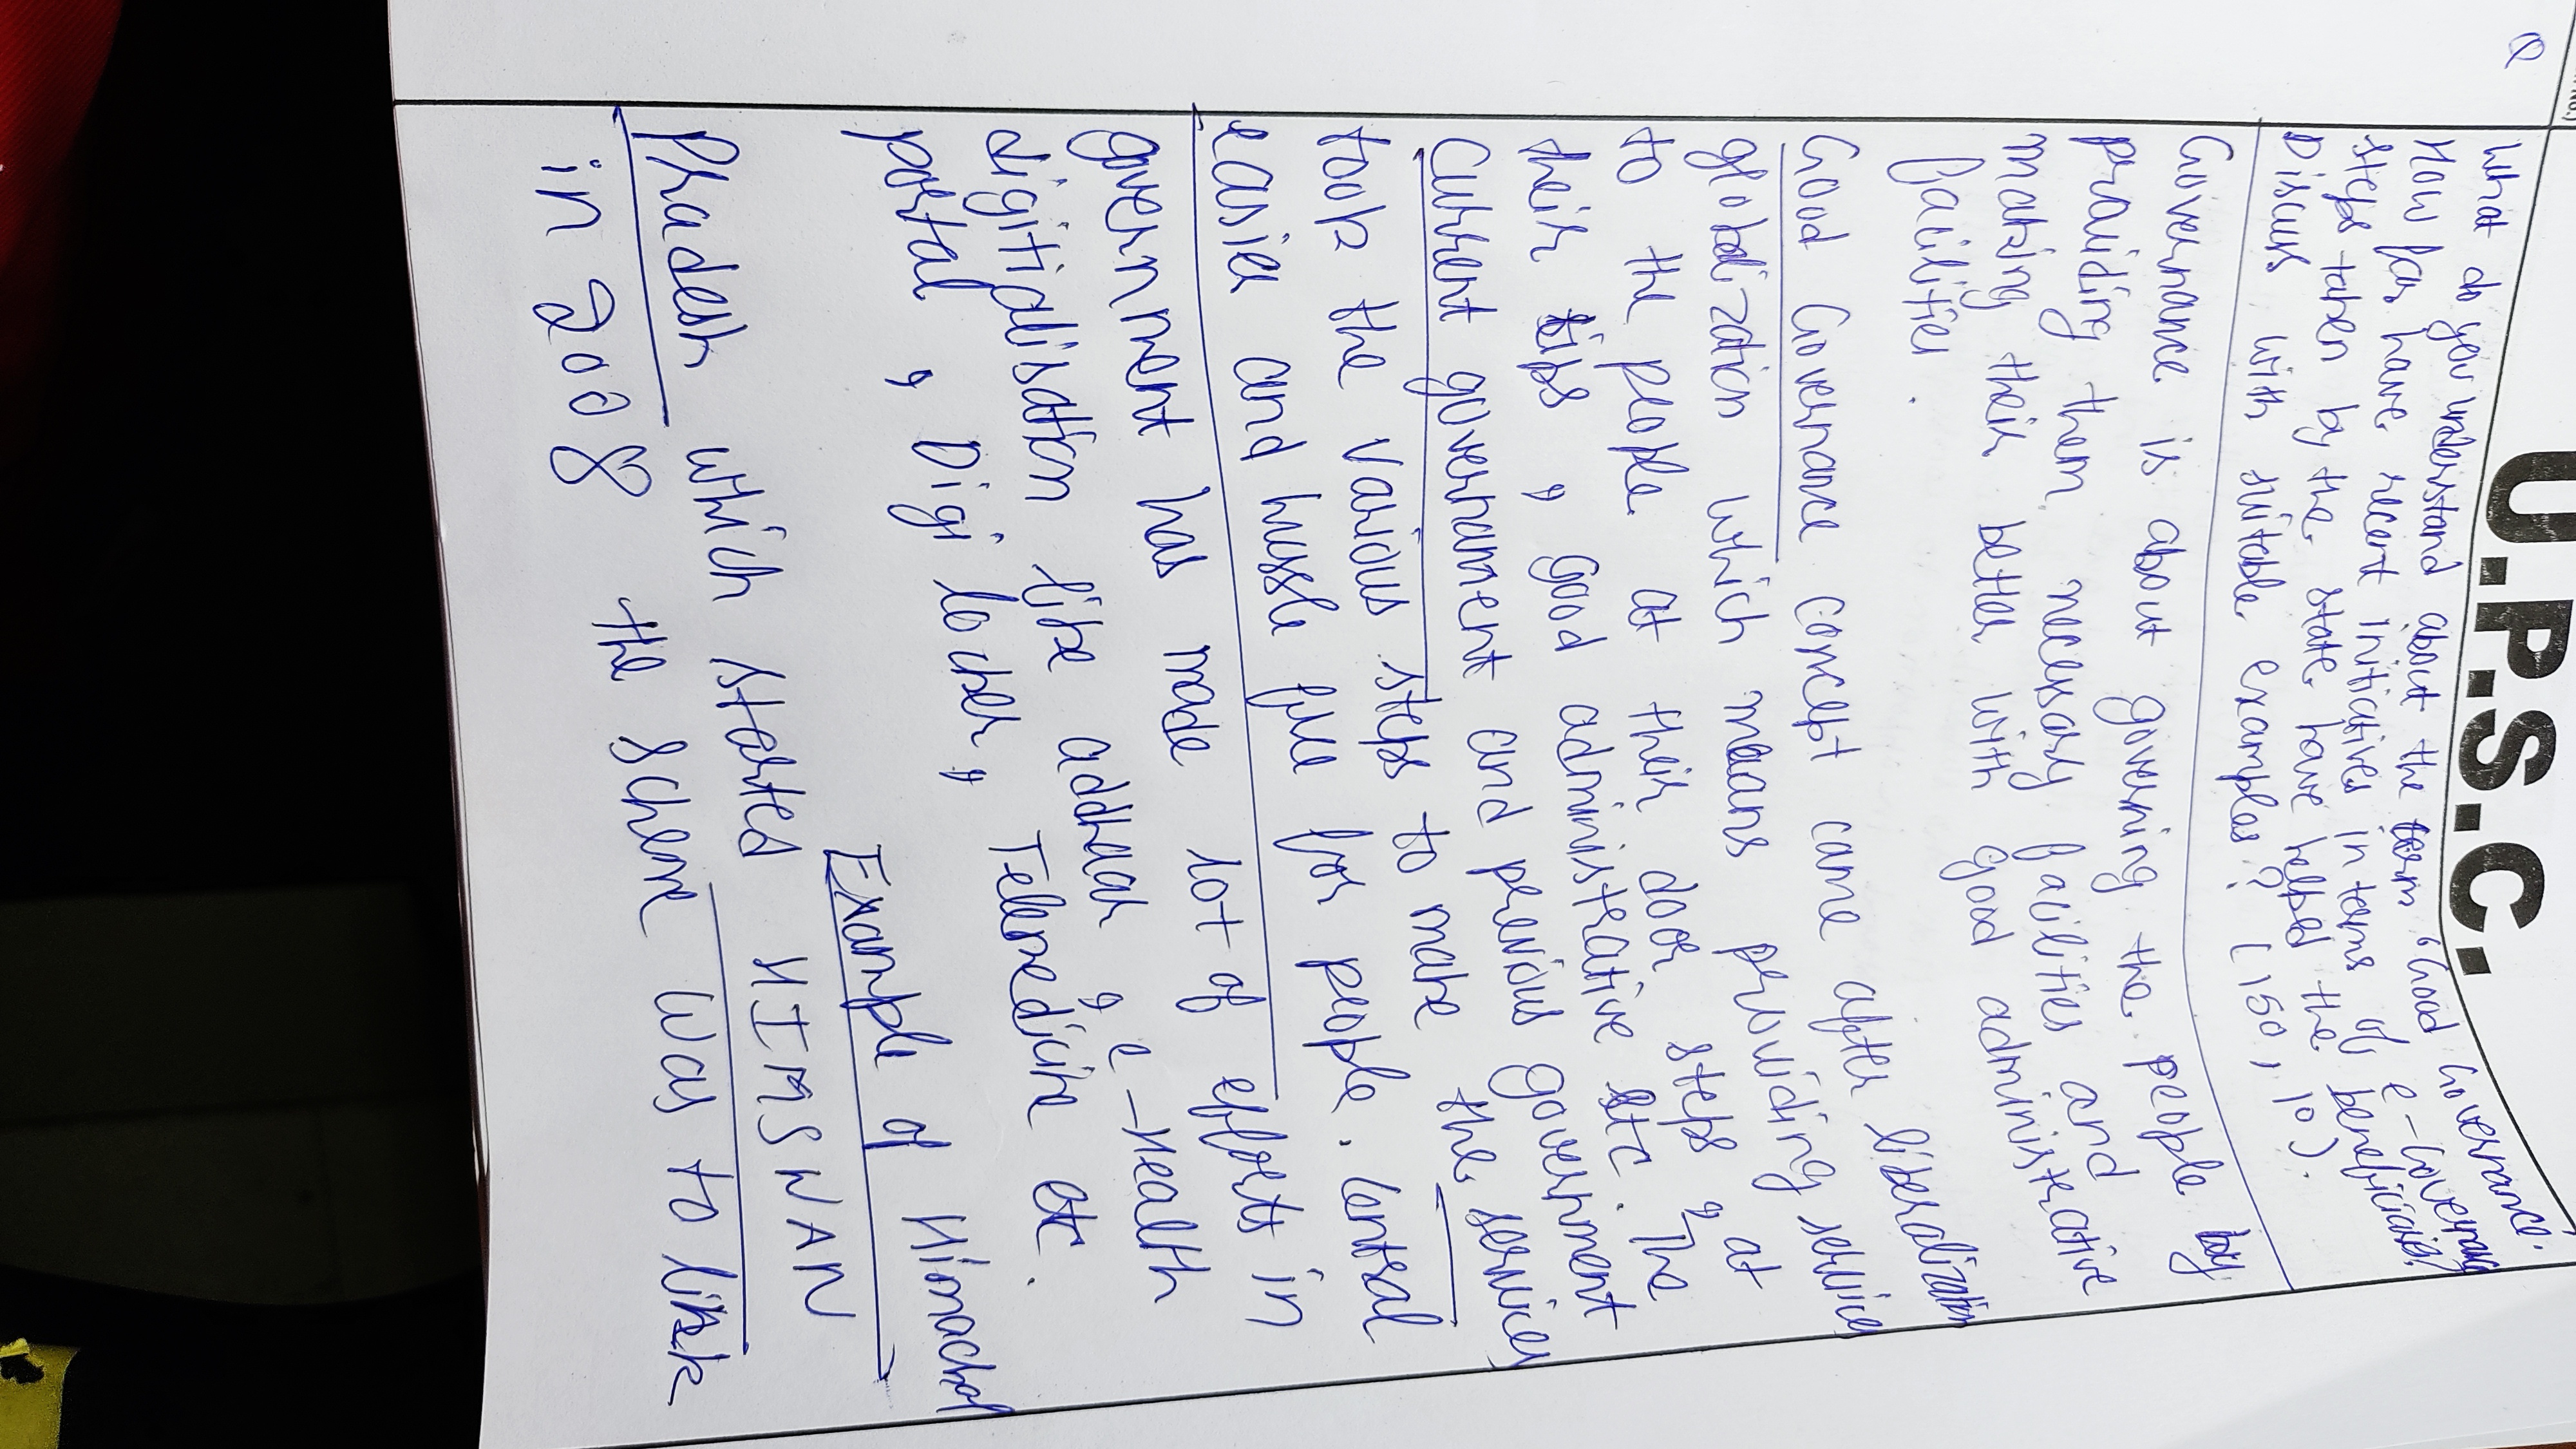 U.P.S.C.
Q What do you understand about the term "Good Governance.
How far have recent initiatives in terms of e-Governance
steps taken by the state have helped the beneficiaries.
Discuss with suitable examples? (150, 10).
Governance is about governing the people by
providing them necessary facilities and
making their better with good administrative
facilities.
Good Governance concept came after liberalization
globalization which means providing service
to the people at their door steps, at
their tips, good administrative etc. The
Current government and previous government
took the various steps to make the services
easier and hussle free for people. Central
Government has made lot of efforts in
digitalisation like addhaar, e-Health
portal, Digi locker, Telemedicine etc.
Example of Himachal
Pradesh which started HIMSWAN
in 2008 the scheme was to link